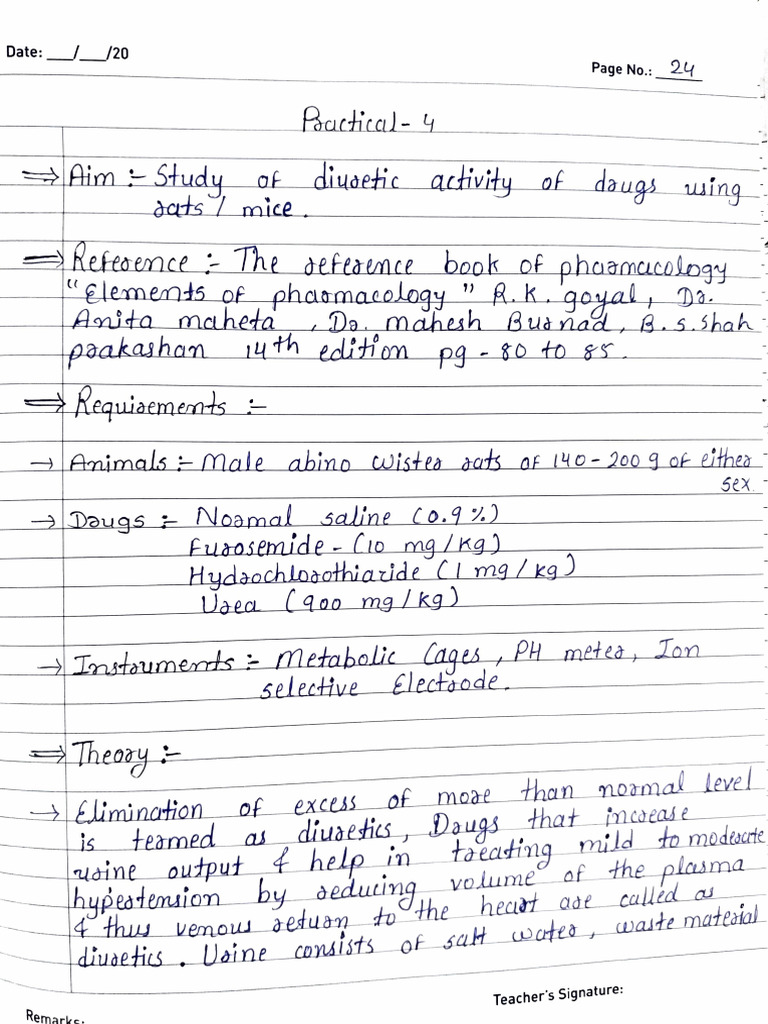 Date: __/__/20
Page No.: 24
Practical - 4
⇒ Aim :- Study of diuretic activity of drugs using
rats / mice.
⇒ Reference :- The reference book of pharmacology
"Elements of pharmacology" R.K. goyal, Dr.
Anita maheta, Dr. mahesh Burnad, B.s.shah
prakashan 14th edition pg - 80 to 85.
⇒ Requirements :-
→ Animals :- Male abino wister rats of 140-200 g of either
sex.
→ Drugs :- Normal saline (0.9%)
Furosemide - (10 mg/kg)
Hydrochlorothiazide (1 mg/kg)
Urea (900 mg/kg)
→ Instruments :- Metabolic Cages, PH meter, Ion
selective Electrode.
⇒ Theory :-
→ Elimination of excess of more than normal level
is termed as diuretics, Drugs that increase
urine output & help in treating mild to moderate
hypertension by reducing volume of the plasma
& thus venous return to the heart are called as
diuretics. Urine consists of salt water, waste material
Teacher's Signature:
Remarks: